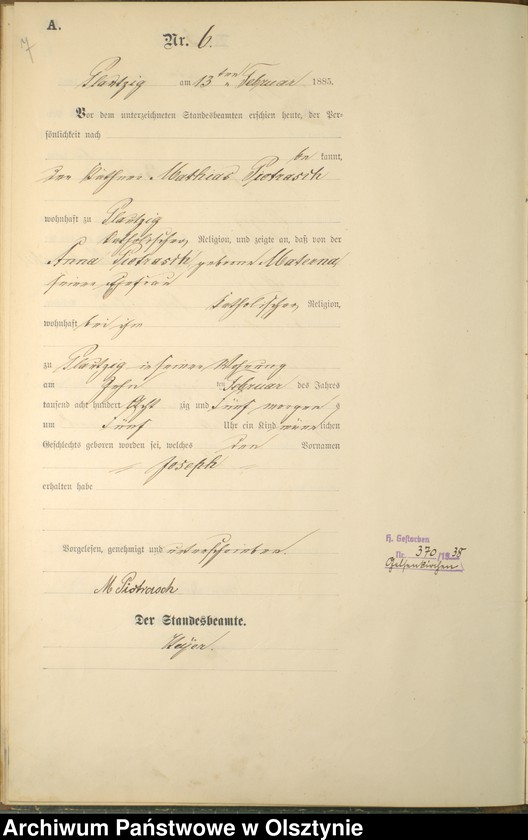 A.
7
Nr. 6.
Plautzig am 13ten Februar 1885.
Vor dem unterzeichneten Standesbeamten erschien heute, der Per-
sönlichkeit nach
be kannt,
Der Käthner Mathias Piotrasch
wohnhaft zu Plautzig
katholischer Religion, und zeigte an, daß von der
Anna Piotrasch, geborene Materna,
seiner Ehefrau
katholischer Religion,
wohnhaft bei ihm
zu Plautzig in seiner Wohnung
am Zehn ten Februar des Jahres
tausend acht hundert Acht zig und Fünf morgens
um Fünf Uhr ein Kind männlichen
Geschlechts geboren worden sei, welches den Vornamen
Joseph
erhalten habe
Vorgelesen, genehmigt und unterschrieben.
M Piotrasch
Der Standesbeamte.
H. Gestorben
Nr. 370/1935
Gelsenkirchen
Archiwum Państwowe w Olsztynie